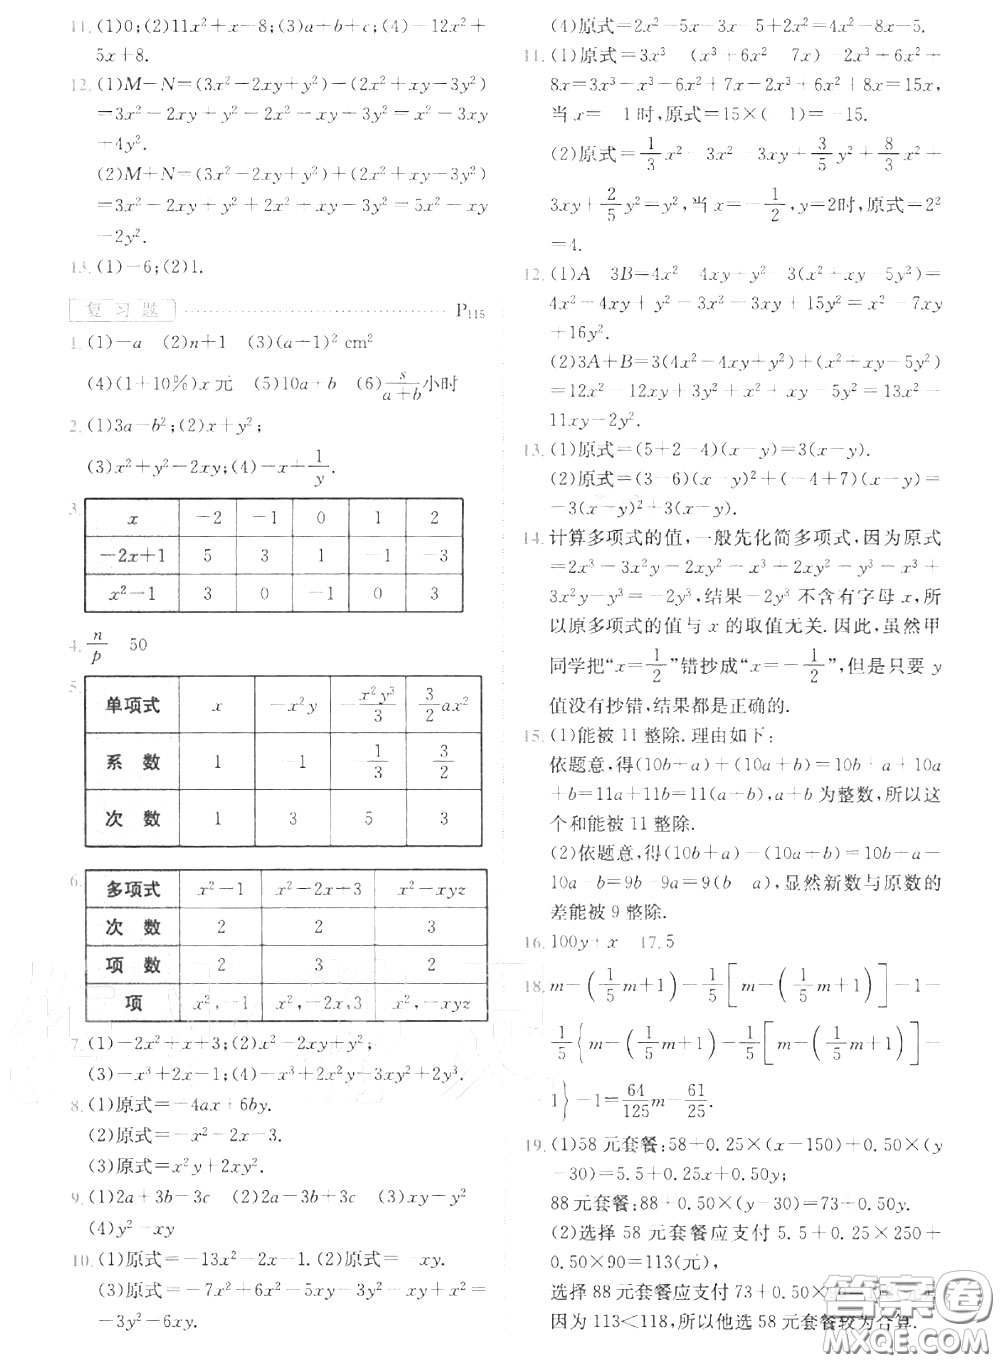 11. (1)0;(2)11x²+x-8;(3)a+b+c;(4)-12x²+
5x+8.
12. (1)M-N=(3x²-2xy+y²)-(2x²+xy-3y²)
=3x²-2xy+y²-2x²-xy+3y²=x²-3xy
+4y².
(2)M+N=(3x²-2xy+y²)+(2x²+xy-3y²)
=3x²-2xy+y²+2x²+xy-3y²=5x²-xy
-2y².
13. (1)-6;(2)1.
复习题 P₁₁₅
1. (1)-a (2)n+1 (3)(a-1)² cm²
(4)(1+10%)x 元 (5)10a+b (6)s/(a+b)小时
2. (1)3a-b²;(2)x+y²;
(3)x²+y²-2xy;(4)-x+1/y.
3.
x -2 -1 0 1 2
-2x+1 5 3 1 -1 -3
x²-1 3 0 -1 0 3
4. n/p 50
5.
单项式 x -x²y -x²y³/3 3/2 ax²
系数 1 -1 -1/3 3/2
次数 1 3 5 3
6.
多项式 x²-1 x²-2x+3 x²-xyz
次数 2 2 3
项数 2 3 2
项 x²,-1 x²,-2x,3 x²,-xyz
7. (1)-2x²+x+3;(2)x²-2xy+y²;
(3)-x³+2x-1;(4)-x³+2x²y-3xy²+2y³.
8. (1)原式=-4ax+6by.
(2)原式=-x²-2x-3.
(3)原式=x²y+2xy².
9. (1)2a+3b-3c (2)2a-3b+3c (3)xy-y²
(4)y²-xy
10. (1)原式=-13x²-2x-1.(2)原式=-xy.
(3)原式=-7x²+6x²-5xy-3y²+x²-xy=
-3y²-6xy.
(4)原式=2x²-5x-3x-5+2x²=4x²-8x-5.
11. (1)原式=3x³ (x³+6x² 7x)-2x³+6x²+
8x=3x³-x³-6x²+7x-2x³+6x²+8x=15x,
当 x= 1时,原式=15×( 1)=-15.
(2)原式=1/3 x² 3x²-3xy+3/5 y²+8/3 x²+
3xy+2/5 y²=y²,当 x=-1/2,y=2时,原式=2²
=4.
12. (1)A 3B=4x² 4xy-y² 3(x²+xy-5y²)=
4x²-4xy+y²-3x²-3xy+15y²=x²-7xy
+16y².
(2)3A+B=3(4x²-4xy+y²)+(x²+xy-5y²)
=12x²-12xy+3y²+x²+xy-5y²=13x²-
11xy-2y².
13. (1)原式=(5+2-4)(x-y)=3(x-y).
(2)原式=(3-6)(x-y)²+(-4+7)(x-y)=
-3(x-y)²+3(x-y).
14. 计算多项式的值,一般先化简多项式,因为原式
=2x³-3x²y-2xy²-x³+2xy²-y³-x³+
3x²y-y³=-2y³,结果-2y³ 不含有字母 x,所
以原多项式的值与 x 的取值无关.因此,虽然甲
同学把“x=1/2”错抄成“x=-1/2”,但是只要 y
值没有抄错,结果都是正确的.
15. (1)能被 11 整除.理由如下:
依题意,得(10b+a)+(10a+b)=10b+a+10a
+b=11a+11b=11(a+b),a+b 为整数,所以这
个和能被 11 整除.
(2)依题意,得(10b+a)-(10a+b)=10b+a-
10a-b=9b-9a=9(b a),显然新数与原数的
差能被 9 整除.
16. 100y+x 17.5
18. m-(1/5 m+1)-1/5[m-(1/5 m+1)]-1-
1/5{m-(1/5 m+1)-1/5[m-(1/5 m+1)]-
1}-1=64/125 m-61/25.
19. (1)58 元套餐:58+0.25×(x-150)+0.50×(y
-30)=5.5+0.25x+0.50y;
88 元套餐:88+0.50×(y-30)=73+0.50y.
(2)选择 58 元套餐应支付 5.5+0.25×250+
0.50×90=113(元),
选择 88 元套餐应支付 73+0.50×
因为 113<118,所以他选 58 元套餐较为合算.
答案圈
MXQE.COM